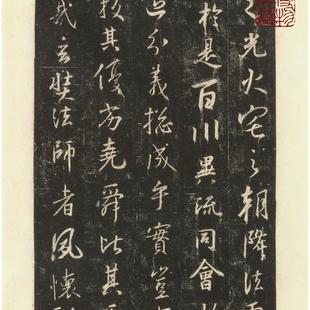 光火宅之朝降法雨
於是百川異流同會
區分義揔成乎實豈
校其優劣堯舜比其
哉玄奘法師者夙懷